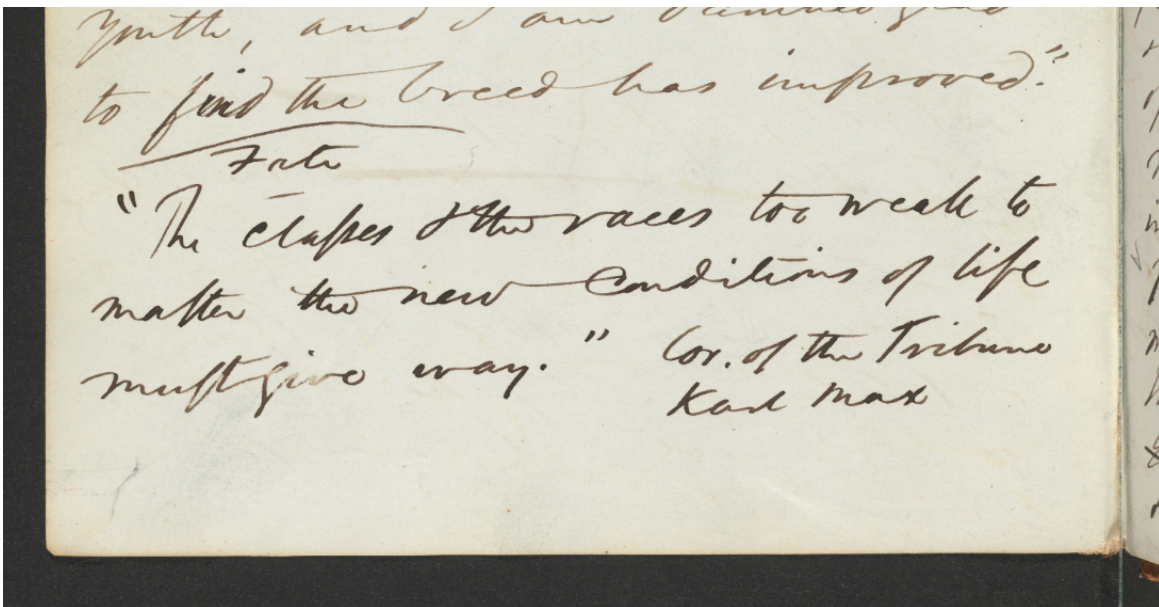 youth, and I am
to find the breed has improved."
Fate
"The classes & the races too weak to
master the new conditions of life
must give way." Cor. of the Tribune
Karl Max